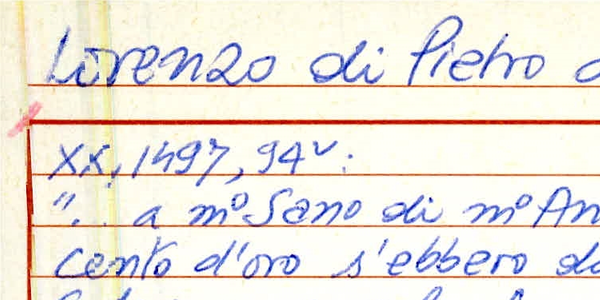 Lorenzo di Pietro d
XX, 1497, 94v:
"... a m° Sano di m° An
cento d'oro s'ebbero da